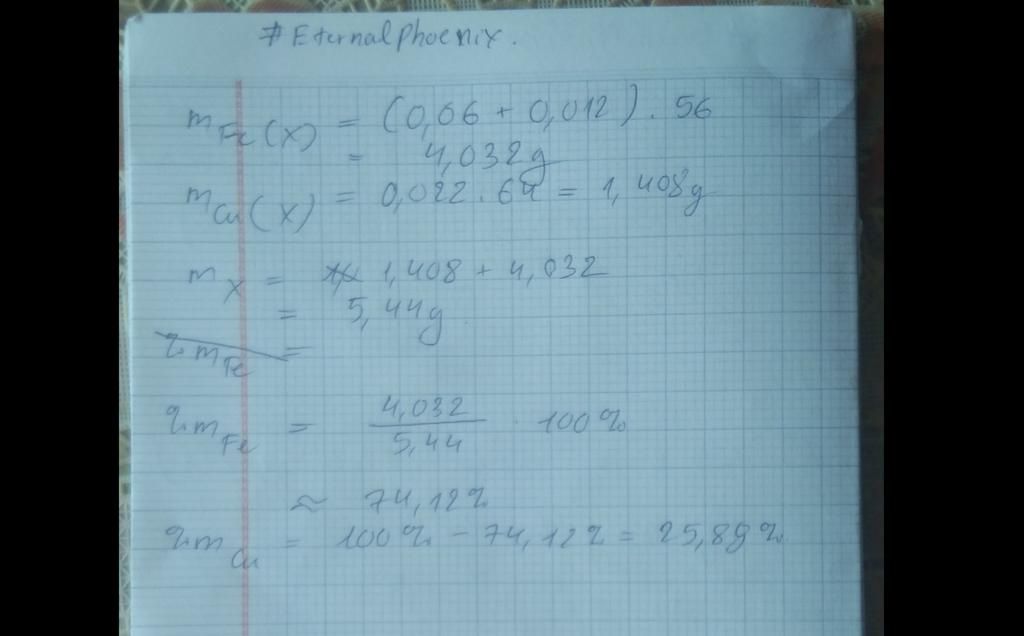 #Eternalphoenix.
m Fe(X) = (0,06 + 0,012). 56
= 4,032g
m Cu(X) = 0,022. 64 = 1,408g
m X = 1,408 + 4,032
= 5,44g
%m Fe =
%m Fe = 4,032 / 5,44 . 100%
≈ 74,12%
%m Cu = 100% - 74,12% = 25,88%